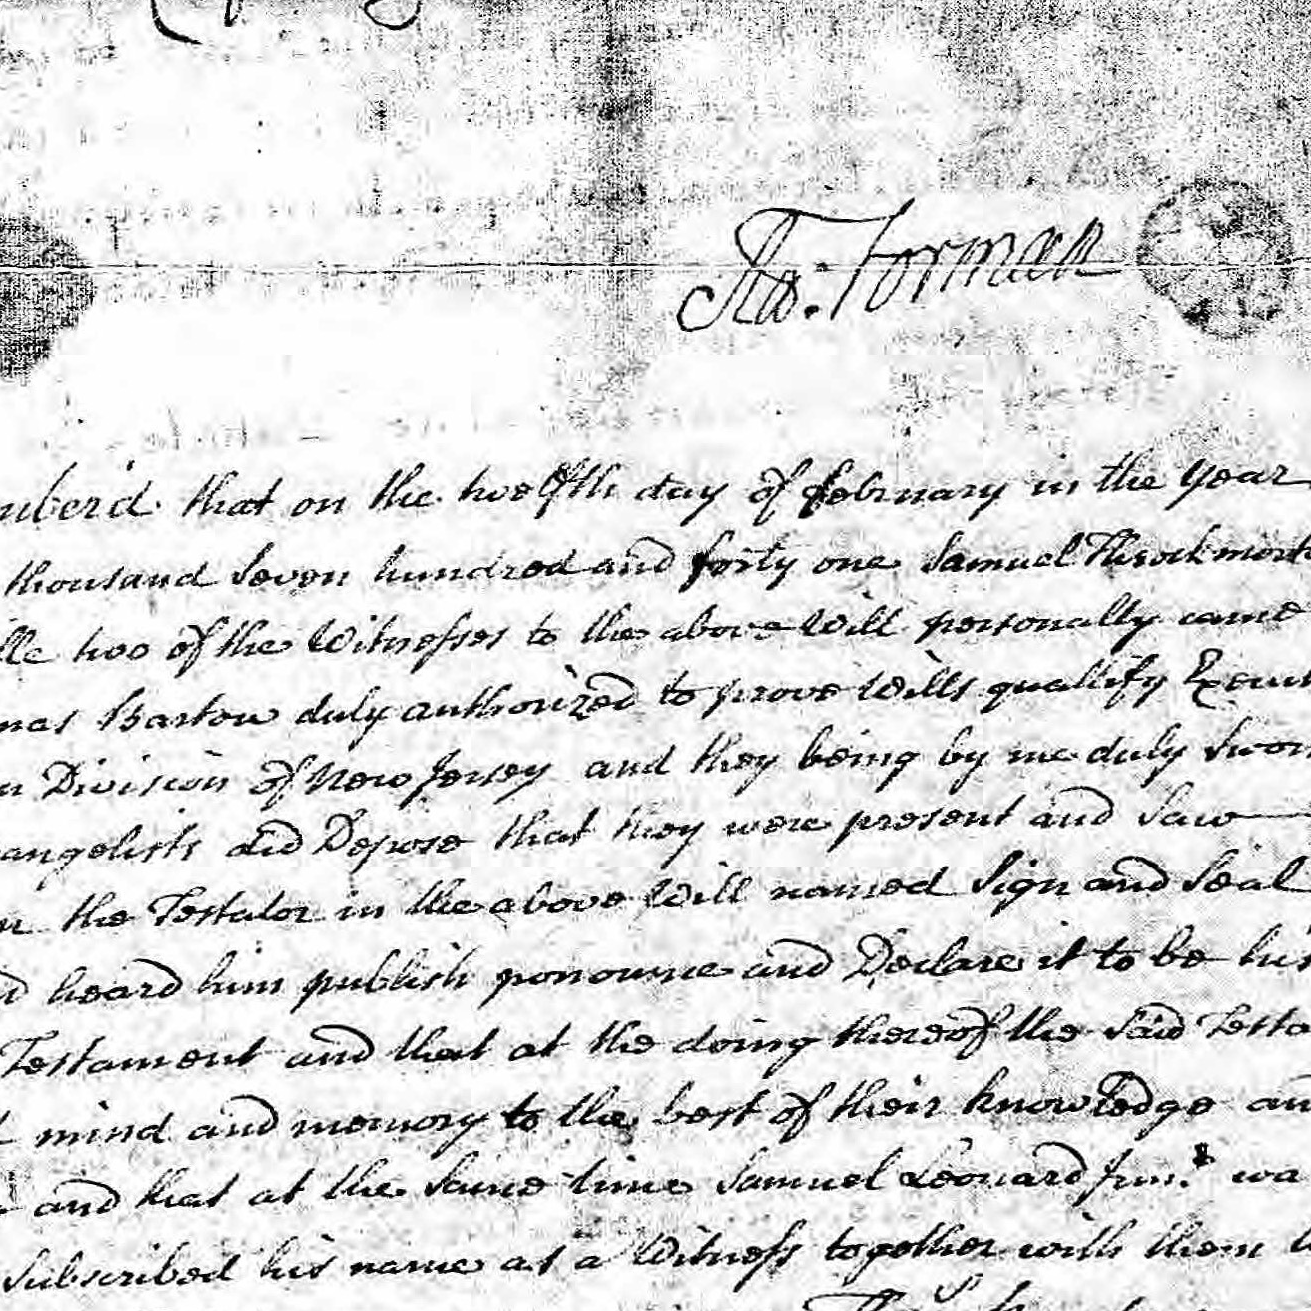 Tho: Forman
mberd that on the twelfth day of february in the year
thousand Seven hundred and forty one Samuel Throckmort
lle two of the Witnesses to the above Will personally came
mas Bartow duly authorized to prove Wills quallify Execut
n Division of New Jersey and they being by me duly Sworn
angelists did Depose that they were present and Saw
n the Testator in the above Will named Sign and Seal
d heard him publish pronounce and Declare it to be his
Testament and that at the doing thereof the Said Testa
t mind and memory to the best of their knowledge an
and that at the Same time Samuel Leonard Junr. wa
Subscribed his name as a Witness together with them